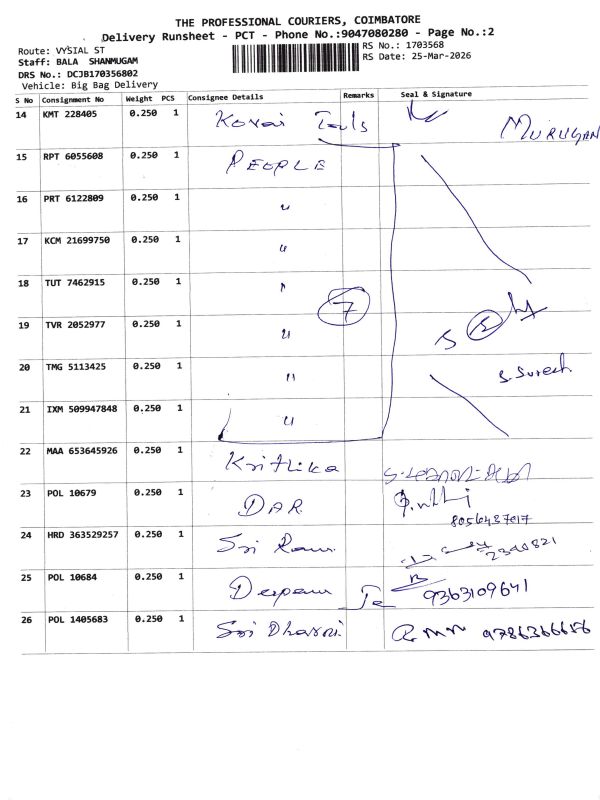 THE PROFESSIONAL COURIERS, COIMBATORE
Delivery Runsheet - PCT - Phone No.:9047080280 - Page No.:2
Route: VYSIAL ST
RS No.: 1703568
Staff: BALA SHANMUGAM
RS Date: 25-Mar-2026
DRS No.: DCJB170356802
Vehicle: Big Bag Delivery
S No Consignment No Weight PCS Consignee Details Remarks Seal & Signature
14 KMT 228405 0.250 1 Kovai Tools MURUGAN
15 RPT 6055608 0.250 1 PEOPLE
16 PRT 6122809 0.250 1 "
17 KCM 21699750 0.250 1 "
18 TUT 7462915 0.250 1 " 7
19 TVR 2052977 0.250 1 "
20 TMG 5113425 0.250 1 " S. Suresh
21 IXM 509947848 0.250 1 "
22 MAA 653645926 0.250 1 Krithika
23 POL 10679 0.250 1 DAR 8056437017
24 HRD 363529257 0.250 1 Sri Ram 2340821
25 POL 10684 0.250 1 Deepam Te 9363109641
26 POL 1405683 0.250 1 Sri Dharni